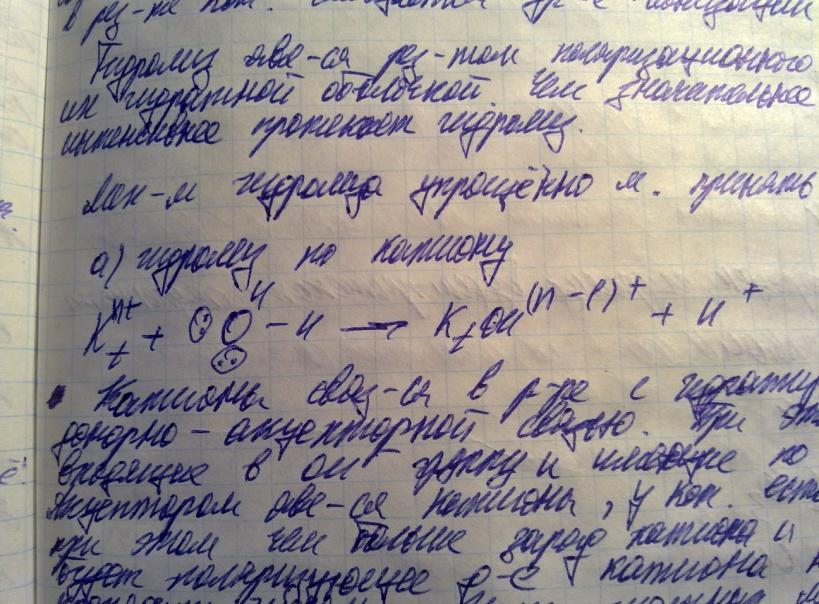 в рез-те
Гидролиз явл-ся рез-том поляризационного
их гидратной оболочкой. Чем значительнее
интенсивнее протекает гидролиз.
гидролиза упрощённо м. принять
а) гидролиз по катиону
Kt^n+ + O^H – H → KtOH^(n-1)+ + H^+
Катионы связ-ся в р-ре с
донорно-акцепторной связью. При
входящие в OH группу и имеющие по
акцептором явл-ся катионы, у кот. есть
при этом чем больше заряд катиона и
будет поляризующее катиона